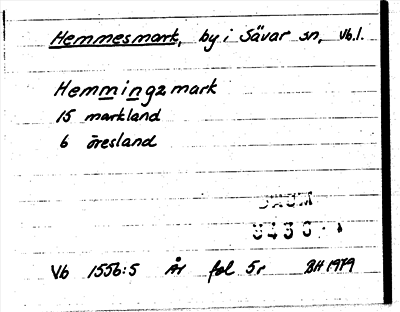 Hemmesmark, by i Sävar sn, Vb.l.
Hemmingzmark
15 markland
6 öresland
DAUM
9430
Vb 1556:5 År fol 5r BH 1979